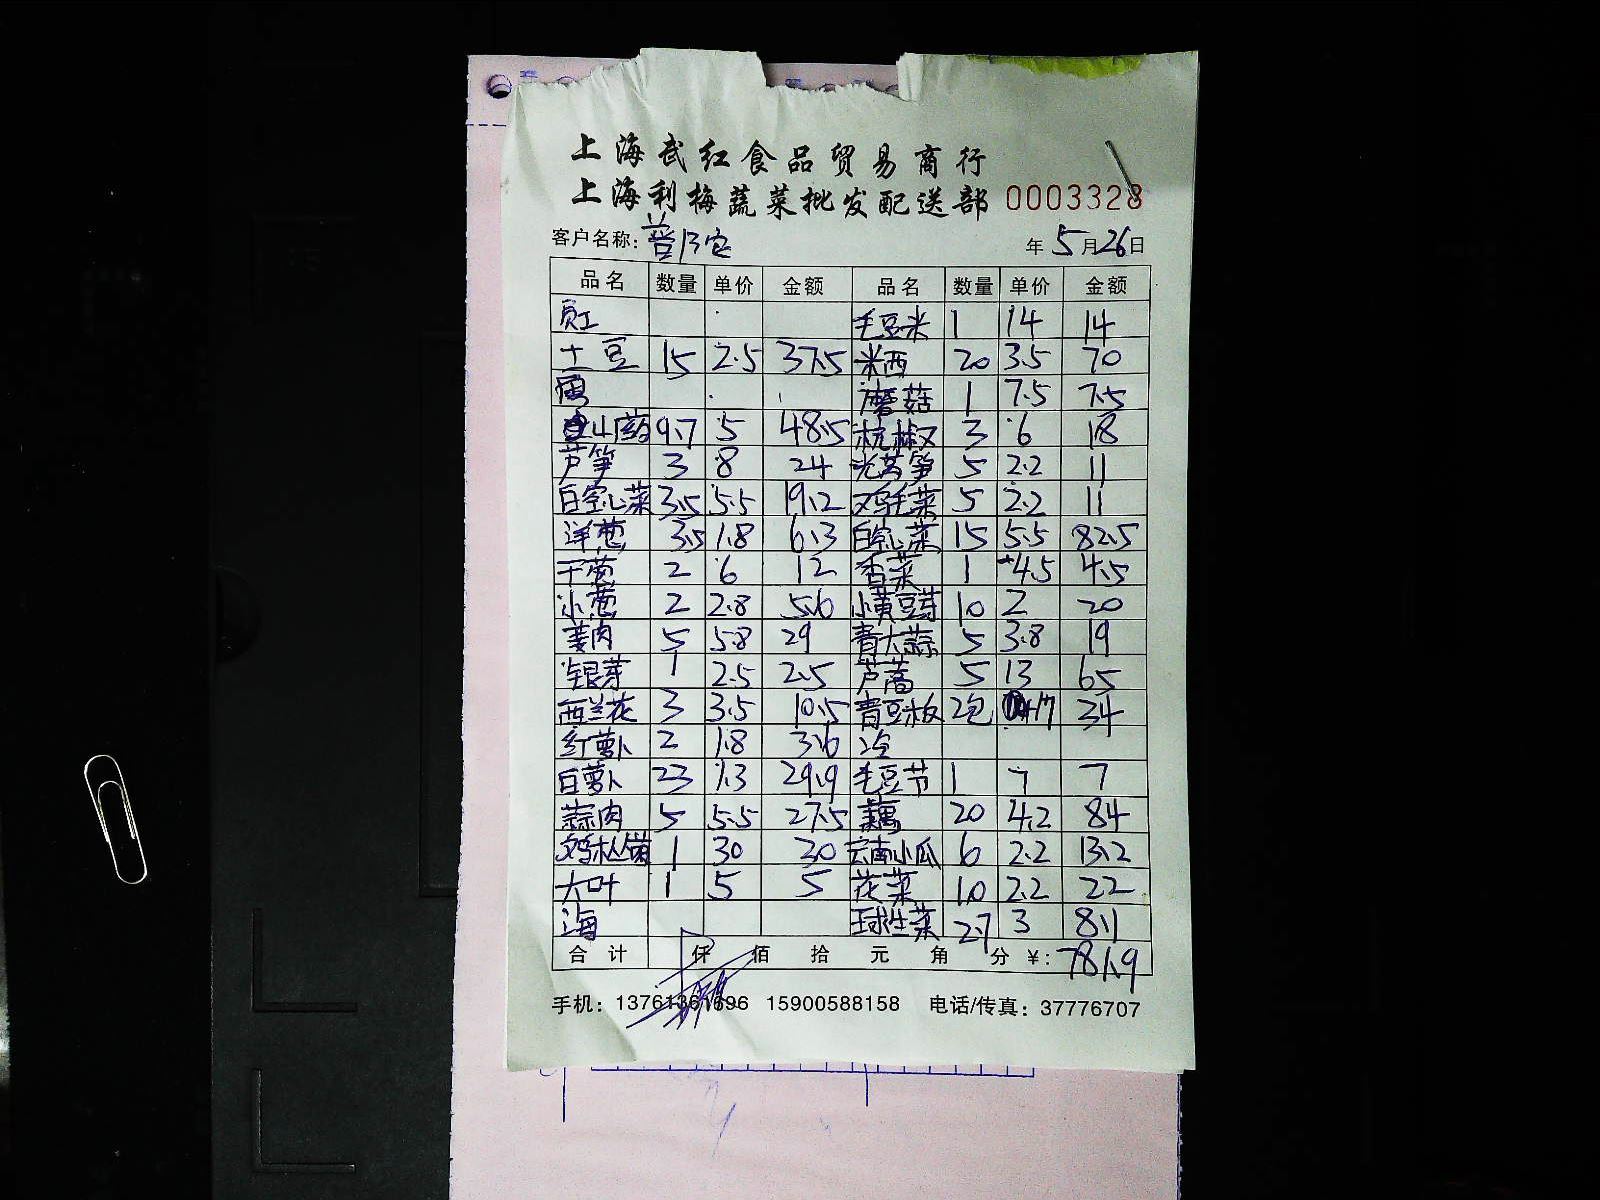 上海武红食品贸易商行
上海利梅蔬菜批发配送部 0003328
客户名称: 年 5 月 26 日
品名 数量 单价 金额 品名 数量 单价 金额
毛豆米 1 14 14
土豆 15 2.5 37.5 米西 20 3.5 70
蘑菇 1 7.5 7.5
山药 9.7 5 48.5 杭椒 3 6 18
芦笋 3 8 24 光莴笋 5 2.2 11
白空心菜 3.5 5.5 19.2 鸡毛菜 5 2.2 11
洋葱 3.5 1.8 6.3 白空心菜 15 5.5 82.5
干葱 2 6 12 香菜 1 4.5 4.5
小葱 2 2.8 5.6 小黄豆芽 10 2 20
姜肉 5 5.8 29 青大蒜 5 3.8 19
银芽 1 2.5 2.5 芦蒿 5 13 65
西兰花 3 3.5 10.5 青豆板 2包 17 34
红萝卜 2 1.8 3.6
白萝卜 23 1.3 29.9 毛豆节 1 7 7
蒜肉 5 5.5 27.5 藕 20 4.2 84
鸡枞菌 1 30 30 云南小瓜 6 2.2 13.2
大叶 1 5 5 花菜 10 2.2 22
海 球生菜 2.7 3 8.1
合计 仟 佰 拾 元 角 分 ¥: 781.9
手机: 13761361696 15900588158 电话/传真: 37776707